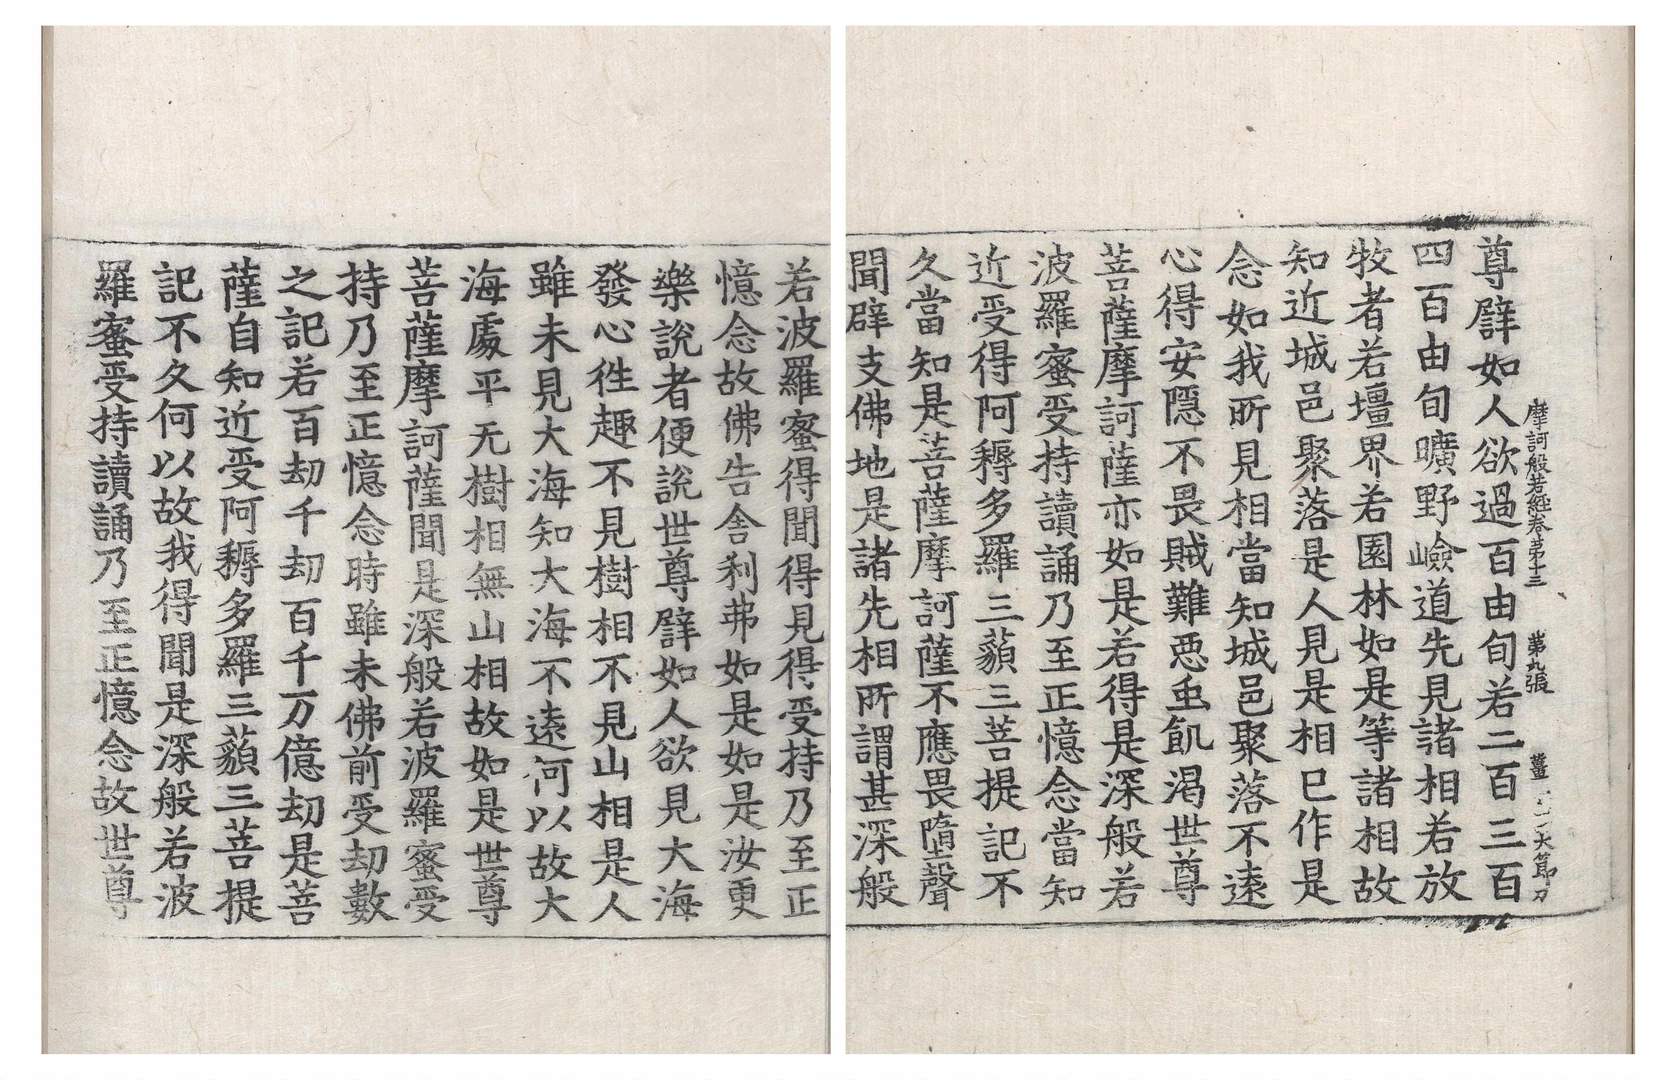 摩訶般若經卷第十三 第九張 薑
尊譬如人欲過百由旬若二百三百
四百由旬曠野嶮道先見諸相若放
牧者若壃界若園林如是等諸相故
知近城邑聚落是人見是相已作是
念如我所見相當知城邑聚落不遠
心得安隱不畏賊難惡虫飢渴世尊
菩薩摩訶薩亦如是若得是深般若
波羅蜜受持讀誦乃至正憶念當知
近受得阿耨多羅三藐三菩提記不
久當知是菩薩摩訶薩不應畏墮聲
聞辟支佛地是諸先相所謂甚深般
若波羅蜜得聞得見得受持乃至正
憶念故佛告舍利弗如是如是汝更
樂說者便說世尊譬如人欲見大海
發心徃趣不見樹相不見山相是人
雖未見大海知大海不遠何以故大
海處平无樹相無山相故如是世尊
菩薩摩訶薩聞是深般若波羅蜜受
持乃至正憶念時雖未佛前受劫數
之記若百劫千劫百千万億劫是菩
薩自知近受阿耨多羅三藐三菩提
記不久何以故我得聞是深般若波
羅蜜受持讀誦乃至正憶念故世尊